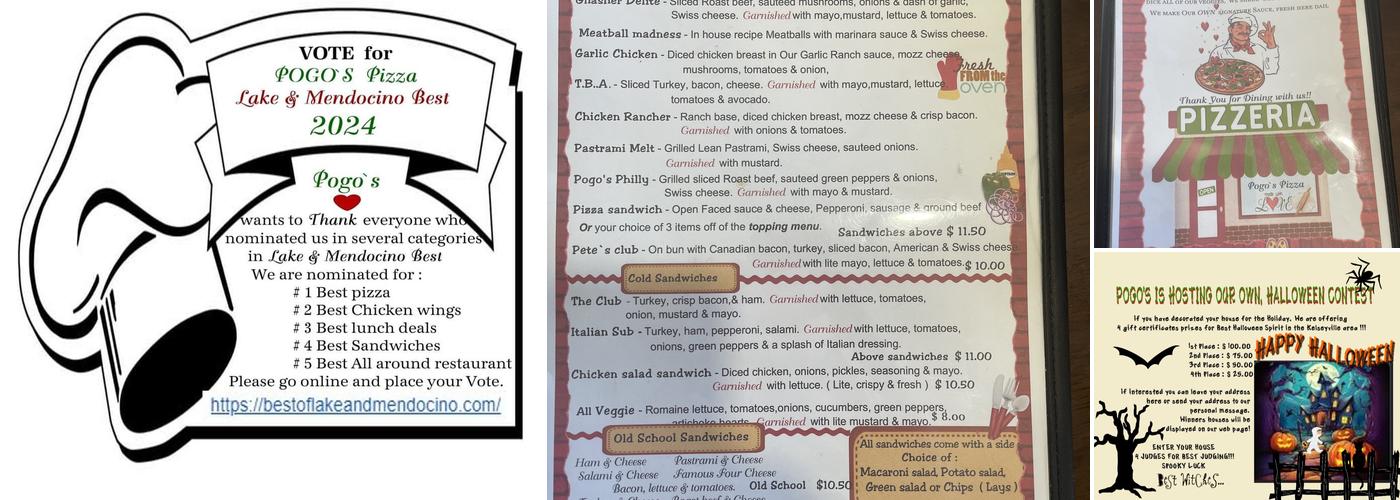 VOTE for
POGO`S Pizza
Lake & Mendocino Best
2024
Pogo`s
wants to Thank everyone who
nominated us in several categories
in Lake & Mendocino Best
We are nominated for :
# 1 Best pizza
# 2 Best Chicken wings
# 3 Best lunch deals
# 4 Best Sandwiches
# 5 Best All around restaurant
Please go online and place your Vote.
https://bestoflakeandmendocino.com/
Sliced Roast beef, sauteed mushrooms, onions & dash of garlic,
Swiss cheese. Garnished with mayo,mustard, lettuce & tomatoes.
Meatball madness - In house recipe Meatballs with marinara sauce & Swiss cheese.
Garlic Chicken - Diced chicken breast in Our Garlic Ranch sauce, mozz cheese,
mushrooms, tomatoes & onion,
T.B..A. - Sliced Turkey, bacon, cheese. Garnished with mayo,mustard, lettuce,
tomatoes & avocado.
Fresh
FROM the
oven
Chicken Rancher - Ranch base, diced chicken breast, mozz cheese & crisp bacon.
Garnished with onions & tomatoes.
Pastrami Melt - Grilled Lean Pastrami, Swiss cheese, sauteed onions.
Garnished with mustard.
Pogo's Philly - Grilled sliced Roast beef, sauted green peppers & onions,
Swiss cheese. Garnished with mayo & mustard.
Pizza sandwich - Open Faced sauce & cheese, Pepperoni, sausage & ground beef
Or your choice of 3 items off of the topping menu.
Sandwiches above $ 11.50
Pete`s club - On bun with Canadian bacon, turkey, sliced bacon, American & Swiss cheese
Garnished with lite mayo, lettuce & tomatoes. $ 10.00
Cold Sandwiches
The Club - Turkey, crisp bacon,& ham. Garnished with lettuce, tomatoes,
onion, mustard & mayo.
Italian Sub - Turkey, ham, pepperoni, salami. Garnished with lettuce, tomatoes,
onions, green peppers & a splash of Italian dressing.
Above sandwiches $ 11.00
Chicken salad sandwich - Diced chicken, onions, pickles, seasoning & mayo.
Garnished with lettuce. ( Lite, crispy & fresh ) $ 10.50
All Veggie - Romaine lettuce, tomatoes,onions, cucumbers, green peppers,
artichoke hearts. Garnished with lite mustard & mayo. $ 8.00
Old School Sandwiches
Ham & Cheese Pastrami & Cheese
Salami & Cheese Famous Four Cheese
Bacon, lettuce & tomatoes. Old School $10.50
All sandwiches come with a side
Choice of :
Macaroni salad, Potato salad,
Green salad or Chips ( Lays )
WE MAKE OUR OWN SIGNATURE SAUCE, FRESH HERE DAIL
Thank You for Dining with us!!
PIZZERIA
OPEN
Pogo's Pizza
made with
LOVE
POGO'S IS HOSTING OUR OWN, HALLOWEEN CONTEST
If you have decorated your house for the Holiday. We are offering
4 gift certificates prizes for Best Halloween Spirit in the Kelseyville area !!!
1st Place : $ 100.00
2nd Place : $ 75.00
3rd Place : $ 50.00
4th Place : $ 25.00
HAPPY HALLOWEEN
If interested you can leave your address
here or send your address to our
personal message.
Winners houses will be
displayed on our web page!
ENTER YOUR HOUSE
4 JUDGES FOR BEST JUDGING!!!
SPOOKY LUCK
Best Witches...